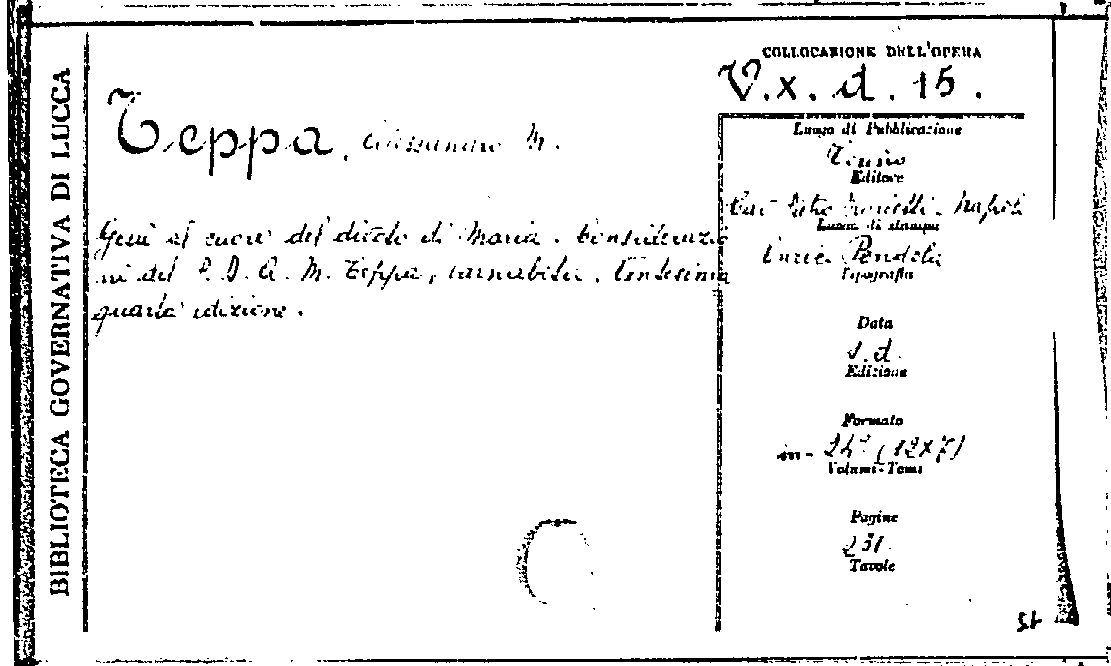 BIBLIOTECA GOVERNATIVA DI LUCCA
COLLOCAZIONE DELL'OPERA
V.x.d.15.
Teppa, Alessandro M.
Gesù al cuore del divoto di Maria. Considerazio
ni del P. D. A. M. Teppa, barnabita.
quarta edizione.
Luogo di Pubblicazione
Torino
Editore
Cav. Pietro Marietti. Napoli
Luogo di stampa
Enrico
Tipografia
Data
s.d.
Edizione
Formato
in-24° (12x7)
Volumi-Tomi
Pagine
231.
Tavole